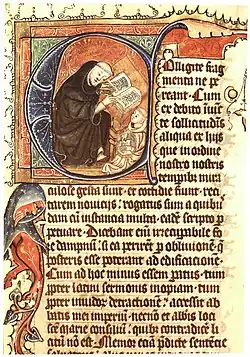 Colligite frag
menta ne pe
reant. Cum
ex debito iniunc
te sollicitudinis
aliqua ex hijs
que in ordine
nostro nostris
temporibus mira
culose gesta sunt. et cotidie fiunt. reci
tarem nouicijs. rogatus sum a quibus
dam cum instantia multa. eadem scripto per
petuare. Dicebant enim irrecuperabile fo
re dampnum. si ea perirent per obliuionem. que
posteris esse poterant ad edificationem.
Cum ad hoc minus essem paratus. tum
propter latini sermonis inopiam. tum prop
ter inuidorum detractionem. accessit ab
batis mei imperium. necnon et abbatis lo
ci sancte marie consilium. quibus contradicere lici
tum non est. Memor etiam predicte sententie